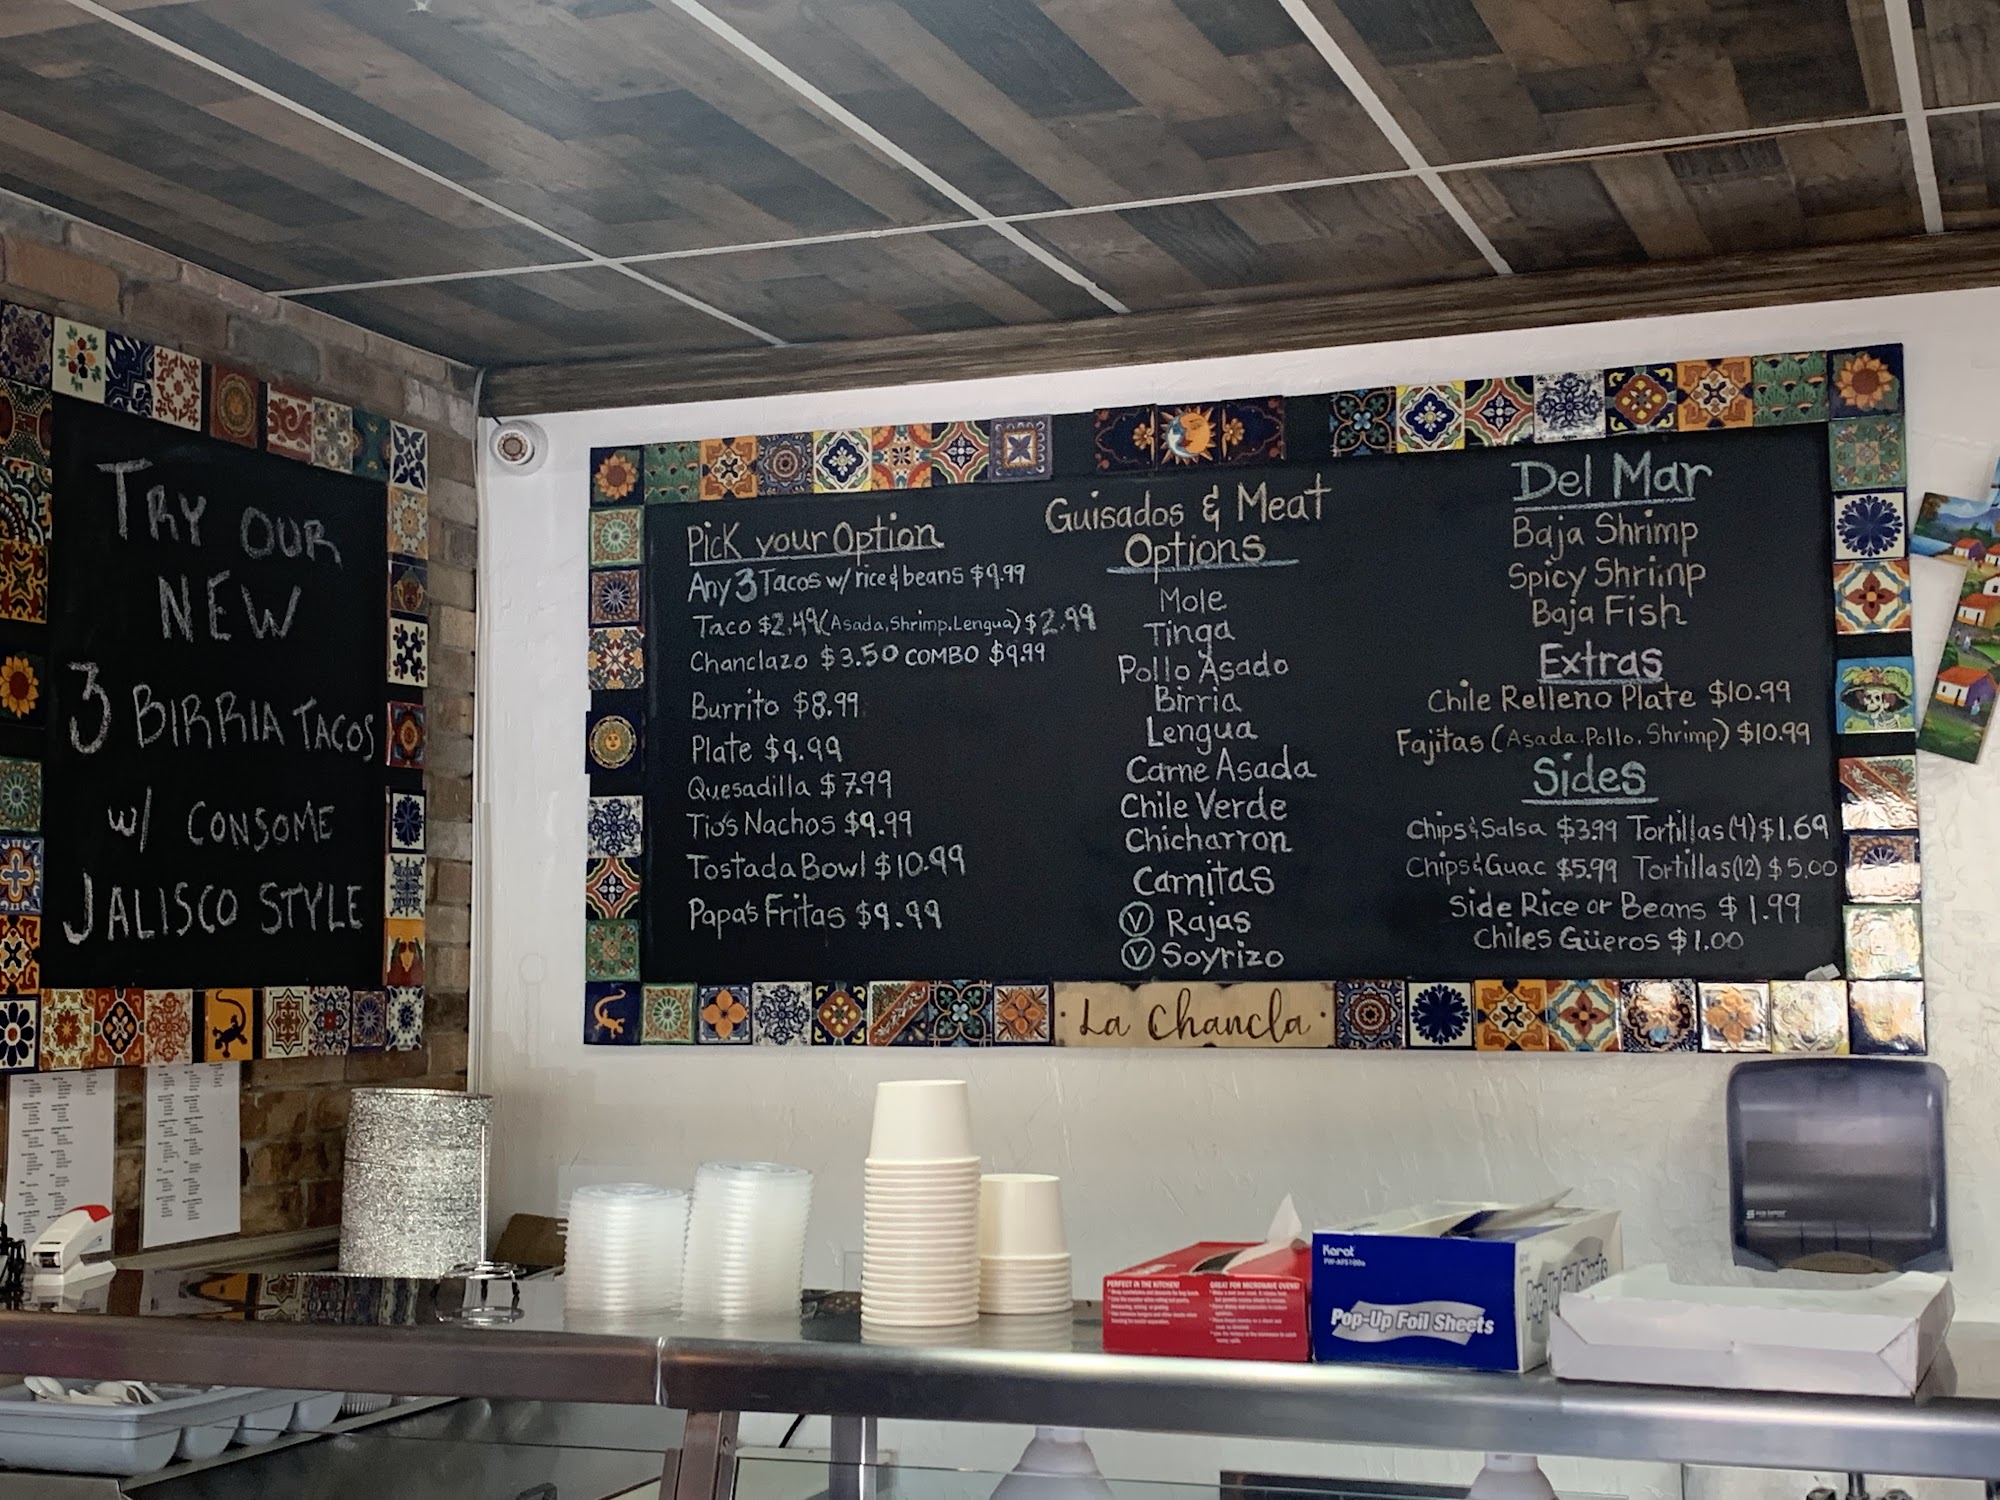 TRY OUR
NEW
3 BIRRIA TACOS
W/ CONSOME
JALISCO STYLE
Pick your Option
Any 3 Tacos w/ rice & beans $9.99
Taco $2.49 (Asada, Shrimp, Lengua) $2.99
Chanclazo $3.50 COMBO $9.99
Burrito $8.99
Plate $9.99
Quesadilla $7.99
Tio's Nachos $9.99
Tostada Bowl $10.99
Papa's Fritas $9.99
Guisados & Meat
Options
Mole
Tinga
Pollo Asado
Birria
Lengua
Carne Asada
Chile Verde
Chicharron
Carnitas
V Rajas
V Soyrizo
Del Mar
Baja Shrimp
Spicy Shrimp
Baja Fish
Extras
Chile Relleno Plate $10.99
Fajitas (Asada. Pollo. Shrimp) $10.99
Sides
Chips & Salsa $3.99 Tortillas (4) $1.69
Chips & Guac $5.99 Tortillas (12) $5.00
Side Rice or Beans $1.99
Chiles Güeros $1.00
La Chancla
PERFECT IN THE KITCHEN!
GREAT FOR MICROWAVE OVENS!
Karat
Pop-Up Foil Sheets